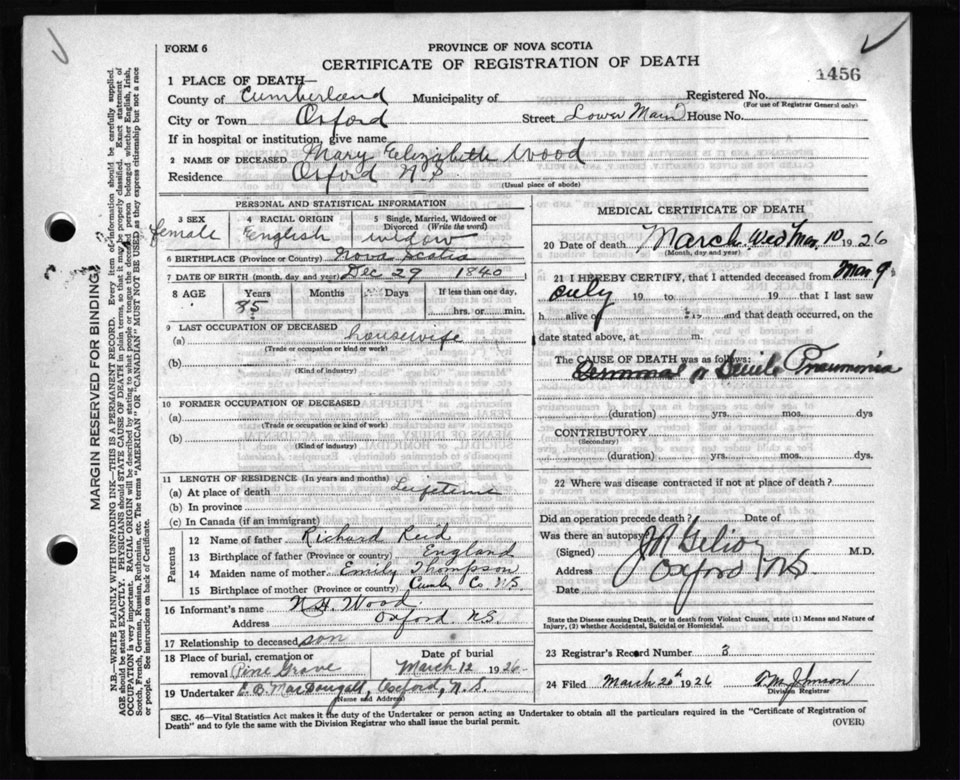 FORM 6
PROVINCE OF NOVA SCOTIA
CERTIFICATE OF REGISTRATION OF DEATH
1456
1 PLACE OF DEATH—
County of Cumberland Municipality of Registered No.
(For use of Registrar General only)
City or Town Oxford Street Lower Main House No.
If in hospital or institution, give name
2 NAME OF DECEASED Mary Elizabeth Wood
Residence Oxford N.S.
(Usual place of abode)
PERSONAL AND STATISTICAL INFORMATION
3 SEX 4 RACIAL ORIGIN 5 Single, Married, Widowed or Divorced (Write the word)
female English widow
6 BIRTHPLACE (Province or Country) Nova Scotia
7 DATE OF BIRTH (month, day and year) Dec 29 1840
8 AGE Years Months Days If less than one day,
85 hrs. or min.
9 LAST OCCUPATION OF DECEASED
(a) housewife
(Trade or occupation or kind or work)
(b)
(Kind of industry)
10 FORMER OCCUPATION OF DECEASED
(a)
(Trade or occupation or kind of work)
(b)
(Kind of industry)
11 LENGTH OF RESIDENCE (In years and months)
(a) At place of death Lifetime
(b) In province
(c) In Canada (if an immigrant)
Parents
12 Name of father Richard Reid
13 Birthplace of father (Province or country) England
14 Maiden name of mother Emily Thompson
15 Birthplace of mother (Province or country) Cumb. Co. N.S.
16 Informant's name N.H. Wood
Address Oxford N.S.
17 Relationship to deceased son
18 Place of burial, cremation or removal Pine Grove Date of burial March 12 1926
19 Undertaker E.B. MacDougall, Oxford, N.S.
(Name and Address)
MEDICAL CERTIFICATE OF DEATH
20 Date of death March Wed Mar 10 1926
(Month, day and year)
21 I HEREBY CERTIFY, that I attended deceased from Mar 9
only 19 to 19 that I last saw
h alive of 19 and that death occurred, on the
date stated above, at m.
The CAUSE OF DEATH was as follows:
Senile Pneumonia
(duration) yrs. mos. dys
CONTRIBUTORY
(Secondary)
(duration) yrs. mos. dys.
22 Where was disease contracted if not at place of death?
Did an operation precede death? Date of
Was there an autopsy?
(Signed) M.D.
Address Oxford NS
Date
State the Disease causing Death, or in death from Violent Causes, state (1) Means and Nature of Injury, (2) whether Accidental, Suicidal or Homicidal.
23 Registrar's Record Number 3
24 Filed March 20th 1926 Johnson
Division Registrar
SEC. 46—Vital Statistics Act makes it the duty of the Undertaker or person acting as Undertaker to obtain all the particulars required in the "Certificate of Registration of
Death" and to fyle the same with the Division Registrar who shall issue the burial permit.
(OVER)
MARGIN RESERVED FOR BINDING
N.B.—WRITE PLAINLY WITH UNFADING INK—THIS IS A PERMANENT RECORD. Every item of information should be carefully supplied.
AGE should be stated EXACTLY. PHYSICIANS should STATE CAUSE OF DEATH in plain terms, so that it may be properly classified. Exact statement of
OCCUPATION is very important. RACIAL ORIGIN will be described by stating to what people or tongue the deceased person belonged whether English, Irish,
Scotch, French, German, Russian, Ruthenian, etc. The terms "AMERICAN" OR "CANADIAN" MUST NOT BE USED as they express citizenship but not a race
or people. See instructions on back of Certificate.